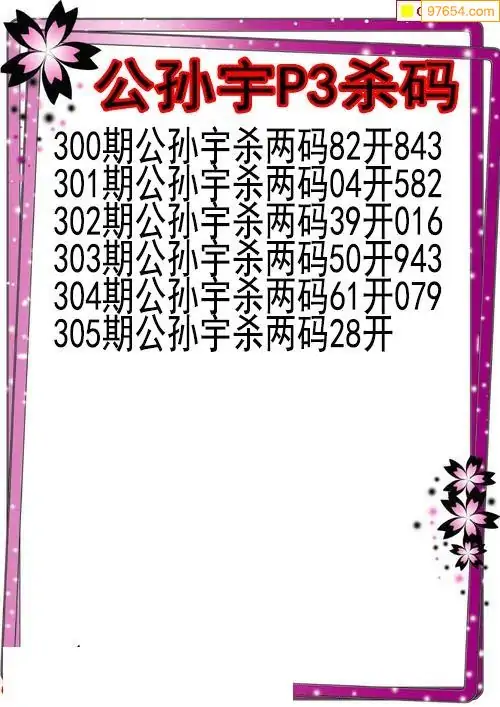 97654.com
公孙宇P3杀码
300期公孙宇杀两码82开843
301期公孙宇杀两码04开582
302期公孙宇杀两码39开016
303期公孙宇杀两码50开943
304期公孙宇杀两码61开079
305期公孙宇杀两码28开